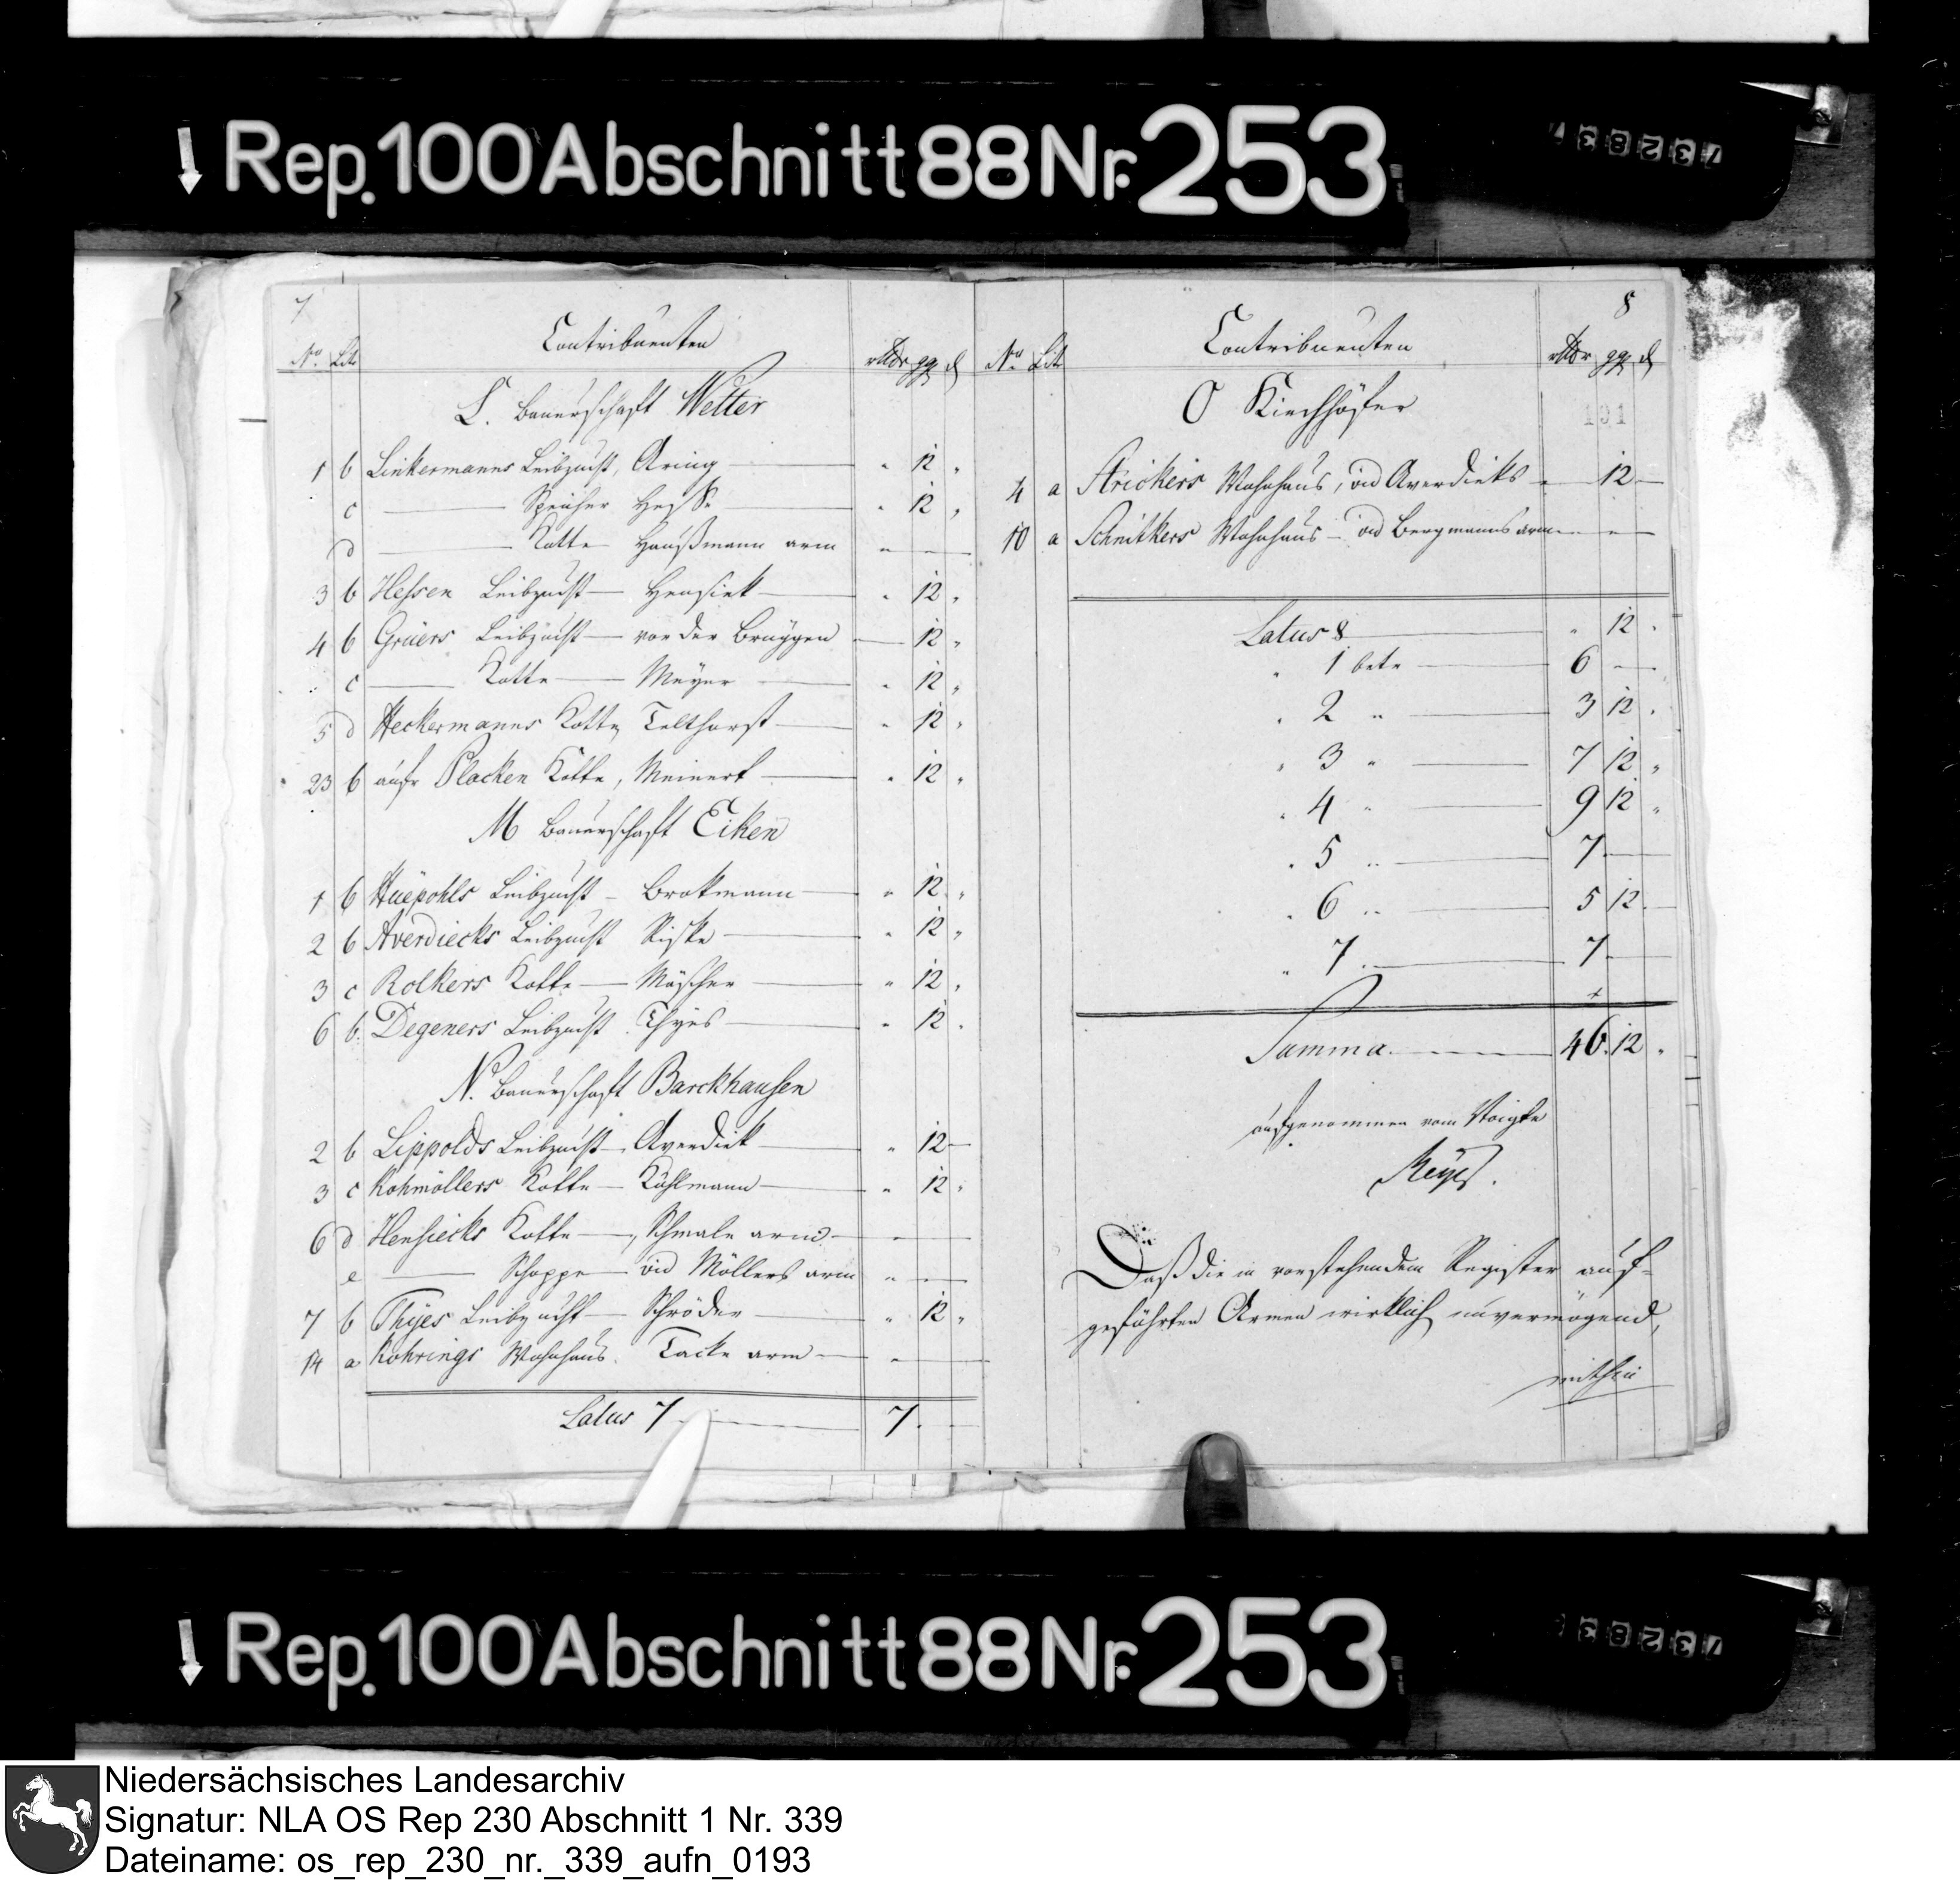 ↓ Rep. 100 Abschnitt 88 Nr. 253
7
Contributenten
No. Litt rthlr ggl d
L. Bauerschaft Wetter
1 b Linkermanns Leibzucht, Aring " 12 "
c — Speicher Hesse " 12 "
d — Kotte Hausmann arm " — —
3 b Hessen Leibzucht — Hensiek — " 12 "
4 b Grüers Leibzucht — von der Brüggen — 12 "
c — Kotte — Meyer — " 12 "
5 d Heckermanns Kotte, Telthorst — " 12 "
23 b aufr Placken Kotte, Meinert — " 12 "
M Bauerschaft Eiken
1 b Huepohls Leibzucht — Brokmann — " 12 "
2 b Averdiecks Leibzucht Riske — " 12 "
3 c Rolkers Kotte — Möscher — " 12 "
6 b. Degeners Leibzucht Thyes — " 12 "
N. Bauerschaft Barckhausen
2 b Lippolds Leibzucht — Averdiek — " 12 —
3 c Kohmöllers Kotte — Kuhlmann — " 12 "
6 d Hensiecks Kotte —, Schmale arm — "
e — Schoppe — vid Möllers arm " —
7 b Thyes Leibzucht — Schröder — " 12 "
14 a Kohrings Wohnhaus. Tacke arm — " —
Latus 7 — 7. —
8
Contributenten
No. Litt rthlr ggl d
O Kirchhöfer
101
4 a Strickers Wohnhaus, vid Averdieks — 12 —
10 a Schnitkers Wohnhaus — vid Bergmanns arm — " —
Latus 8 — " 12 "
" 1 bete — 6 — "
" 2 " — 3 12 "
" 3 " — 7 12 "
" 4 " — 9 12 "
" 5 " — 7 —
" 6 " — 5 12 —
" 7 — 7 —
Summa — 46. 12 "
aufgenommen vom Voigte
Meyer.
Daß die in vorstehendem Register auf-
geführten Armen wirklich unvermögend,
mithin
↓ Rep. 100 Abschnitt 88 Nr. 253
Niedersächsisches Landesarchiv
Signatur: NLA OS Rep 230 Abschnitt 1 Nr. 339
Dateiname: os_rep_230_nr._339_aufn_0193